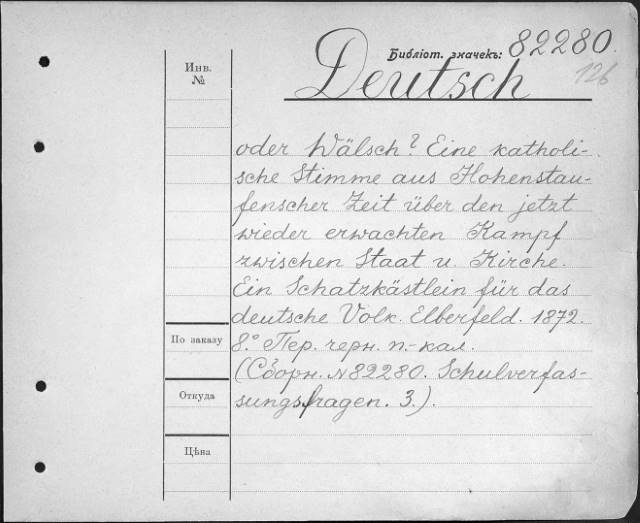 Библіот. значекъ: 82280.
126
Deutsch
Инв.
№
oder Wälsch? Eine katholi-
sche Stimme aus Hohenstau-
fenscher Zeit über den jetzt
wieder erwachten Kampf
zwischen Staat u. Kirche.
Ein Schatzkästlein für das
deutsche Volk. Elberfeld. 1872.
8.° Пер. черн. п.-кал.
(Сборн. №82280. Schulverfas-
sungsfragen. 3.).
По заказу
Откуда
Цѣна